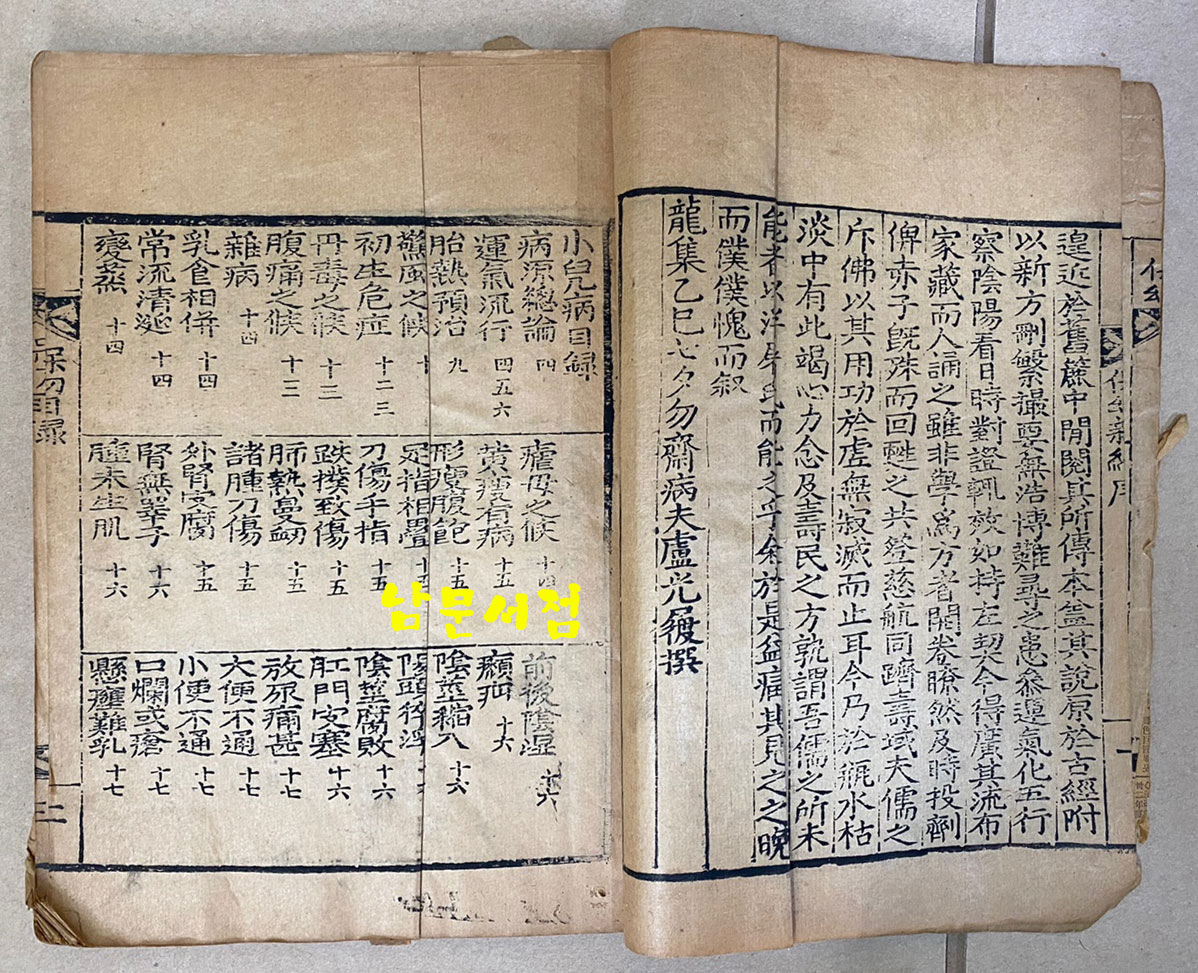 遑近於舊簏中閒閱其所傳本盖其說原於古經附
以新方刪繁撮要無浩博難尋之患叅運氣化五行
察陰陽看日時對證輒效如持左契今得廣其流布
家藏而人誦之雖非學爲方者開卷瞭然及時投劑
俾赤子旣殊而回甦之共登慈航同躋壽域夫儒之
斥佛以其用功於虛無寂滅而止耳今乃於甁水枯
淡中有此竭心力念及壽民之方孰謂吾儒之所未
能者以洋屠氏而能之乎余於是益痛其見之之晚
而僕僕愧而叙
龍集乙巳七夕勿齋病夫盧光履撰
小兒病目錄
病源總論 四
運氣流行 四五六
胎熱預治 九
驚風之候 十
初生危症 十二三
丹毒之候 十三
腹痛之候 十三
雜病 十四
乳食相倂 十四
常流清涎 十四
變蒸 十四
瘧母之候 十四
黃瘦有病 十五
形瘦腹飽 十五
足指相疊 十五
刀傷手指 十五
跌撲致傷 十五
肺熱鼻衂 十五
諸腫刀傷 十五
外腎突腐 十五
腎無睾子 十六
膣未生肌 十六
前後陰濕 十六
㿗疝 十六
陰莖縮入 十六
陽頭浮浮 十六
陰莖腐敗 十六
肛門突塞 十六
放尿痛甚 十七
大便不通 十七
小便不通 十七
口爛或瘡 十七
懸癰難乳 十七
保幼目錄
二
保幼新編序
남문서점